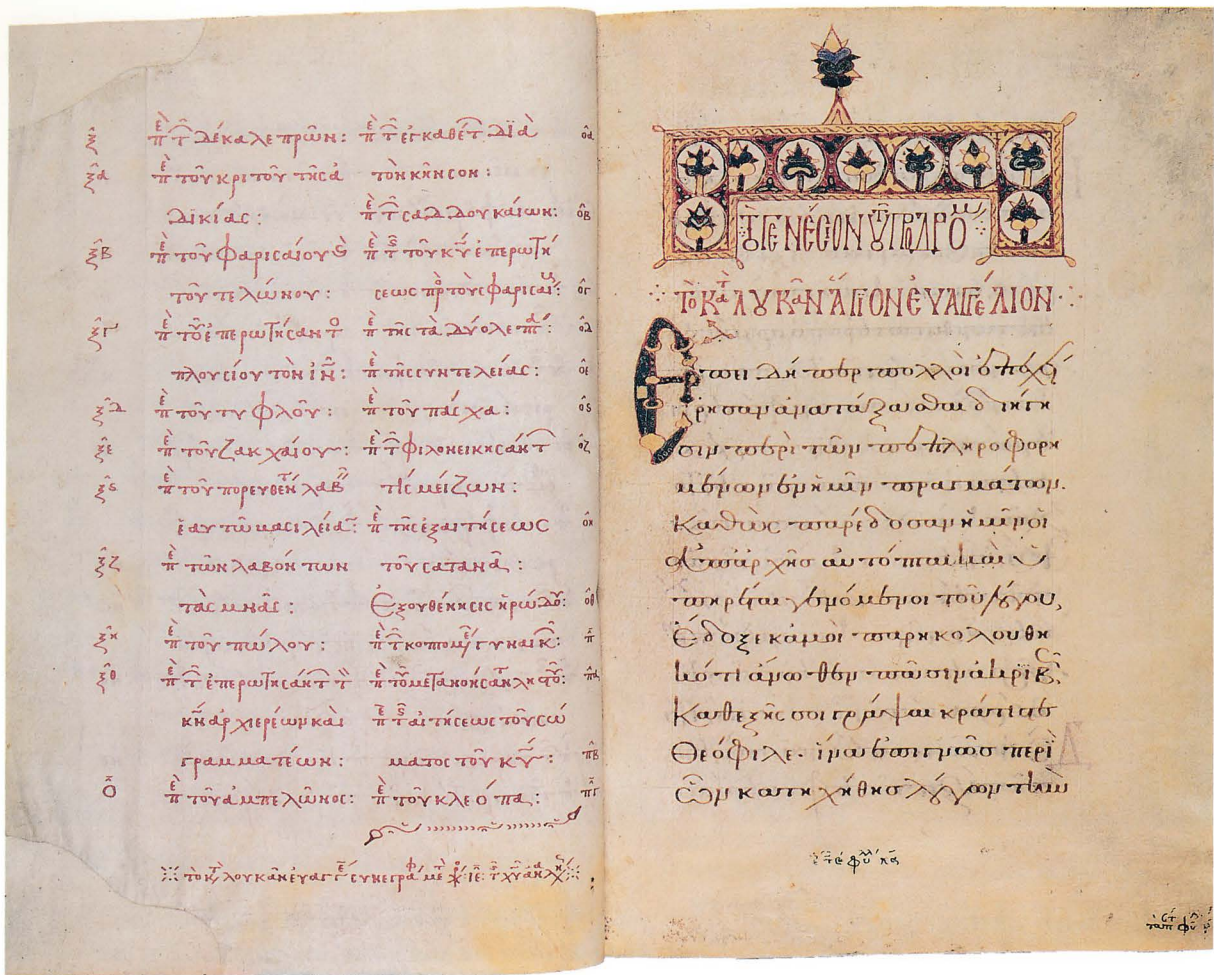 ξ̂ πε τ̑ δέκα λεπρῶν:
ξ̂α πε τοῦ κριτοῦ τῆς ἀ
δικίας:
ξ̂β πε τοῦ φαρισαίου ϗ
τοῦ τελώνου:
ξ̂γ πε τοῦ ἐπερωτήσαντο
πλουσίου τὸν ἰν̅:
ξ̂δ πε τοῦ τυφλοῦ:
ξ̂ε πε τοῦ ζακχαίου:
ξ̂ς πε τοῦ πορευθέντ λαβ
ἑαυτῶ βασιλεία:
ξ̂ζ πε τῶν λαβόντων
τὰς μνᾶς:
ξ̂η πε τοῦ πώλου:
ξ̂θ πε τ̑ ἐπερωτησάντ τ
κν̅ ἀρχιερέων καὶ
γραμματέων:
ο̂ πε τοῦ ἀμπελῶνος:
πε τ̑ ἐγκαθέτ διὰ οα
τὸν κῆνσον:
πε τ̑ σαδδουκαίων: οβ
πε τ̑ τοῦ κυ̅ ἐπερωτή
σεως πρ τοὺς φαρισαί: ογ
πε τῆς τὰ δύο λεπτά: οδ
πε τῆς συντελείας: οε
πε τοῦ πάσχα: ος
πε τ̑ φιλονεικησάντ οζ
τίς μείζων:
πε τῆς ἐξαιτήσεως οη
τοῦ σατανᾶ:
Ἐξουθένησις ἡρώδου: οθ
πε τ̑ κοπτομέ γυναικ: π
πε τοῦ μετανοήσαν ληστοῦ: πα
πε τ̑ αἰτήσεως τοῦ σώ
ματος τοῦ κυ̅: πβ
πε τοῦ κλεόπα: πγ
τὸ κτ λουκᾶν εὐαγγ συνεγράφ
Τὸ κατ λουκᾶν ἅγιον ευαγγέλιον
Ἐπειδήπερ πολλοὶ ἐπεχεί
ρησαν ἀνατάξασθαι διήγη
σιν περὶ τῶν πεπληροφορη
μένων ἐν ἡμῖν πραγμάτων.
Καθὼς παρέδοσαν ἡμῖν οἱ
ἀπαρχῆς αὐτόπται καὶ
ὑπηρέται γενόμενοι τοῦ λόγου,
Ἔδοξε κἀμοὶ παρηκολουθη
κότι ἄνωθεν πᾶσιν ἀκριβῶς,
Καθεξῆς σοι γράψαι κράτιστε
Θεόφιλε. ἵνα ἐπιγνῶς περὶ
ὧν κατηχήθης λόγων τὴν